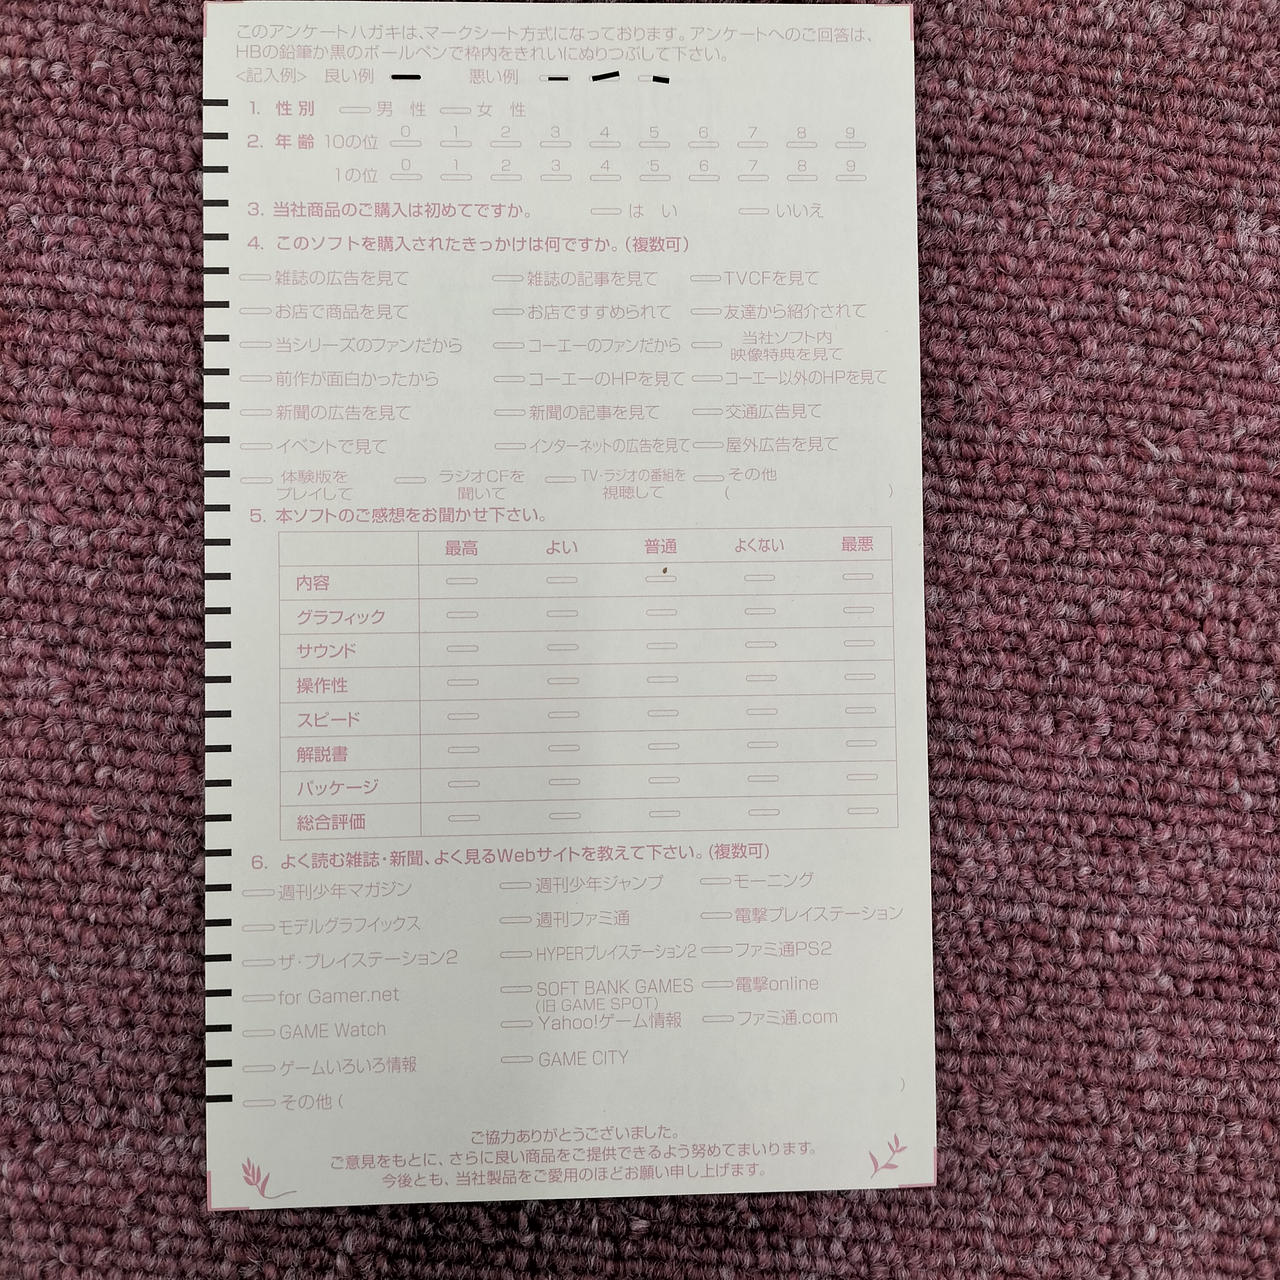 このアンケートハガキは、マークシート方式になっております。アンケートへのご回答は、
HBの鉛筆か黒のボールペンで枠内をきれいにぬりつぶして下さい。
<記入例> 良い例 悪い例
1. 性別 男 性 女 性
2. 年齢 10の位 0 1 2 3 4 5 6 7 8 9
1の位 0 1 2 3 4 5 6 7 8 9
3. 当社商品のご購入は初めてですか。 は い いいえ
4. このソフトを購入されたきっかけは何ですか。(複数可)
雑誌の広告を見て 雑誌の記事を見て TVCFを見て
お店で商品を見て お店ですすめられて 友達から紹介されて
当シリーズのファンだから コーエーのファンだから 当社ソフト内映像特典を見て
前作が面白かったから コーエーのHPを見て コーエー以外のHPを見て
新聞の広告を見て 新聞の記事を見て 交通広告見て
イベントで見て インターネットの広告を見て 屋外広告を見て
体験版をプレイして ラジオCFを聞いて TV・ラジオの番組を視聴して その他 ( )
5. 本ソフトのご感想をお聞かせ下さい。
最高 よい 普通 よくない 最悪
内容
グラフィック
サウンド
操作性
スピード
解説書
パッケージ
総合評価
6. よく読む雑誌・新聞、よく見るWebサイトを教えて下さい。(複数可)
週刊少年マガジン 週刊少年ジャンプ モーニング
モデルグラフイックス 週刊ファミ通 電撃プレイステーション
ザ・プレイステーション2 HYPERプレイステーション2 ファミ通PS2
for Gamer.net SOFT BANK GAMES 電撃online
(旧 GAME SPOT)
GAME Watch Yahoo!ゲーム情報 ファミ通.com
ゲームいろいろ情報 GAME CITY
その他 ( )
ご協力ありがとうございました。
ご意見をもとに、さらに良い商品をご提供できるよう努めてまいります。
今後とも、当社製品をご愛用のほどお願い申し上げます。